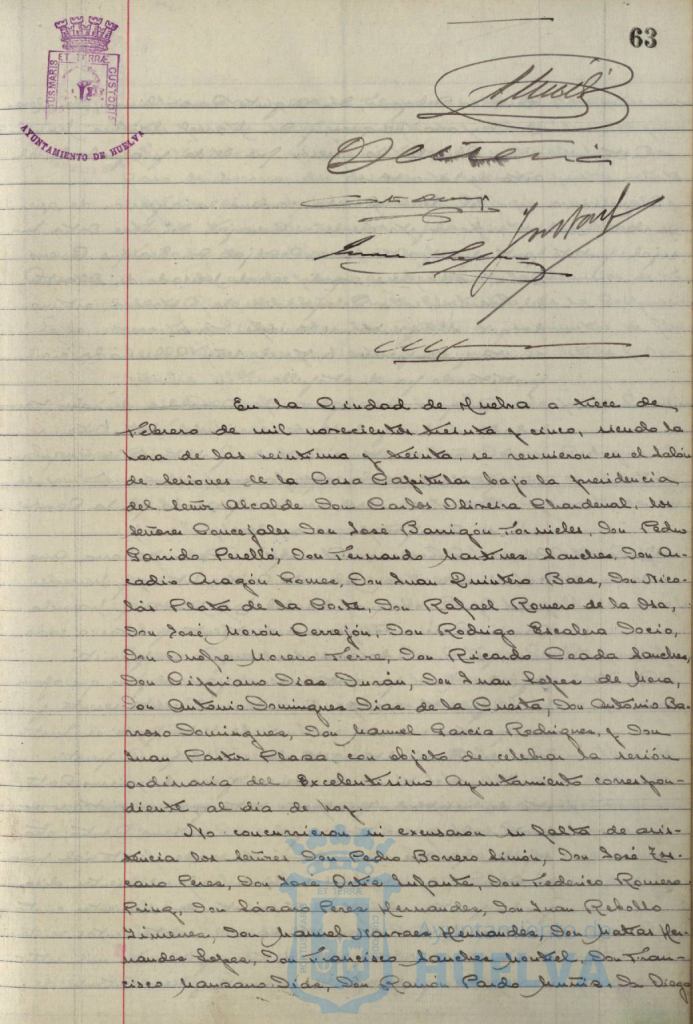 63
ET TERRÆ
CUSTODIA
AYUNTAMIENTO DE HUELVA
En la Ciudad de Huelva a trece de
Febrero de mil novecientos treinta y cinco, siendo la
hora de las veintiuna y treinta, se reunieron en el Salón
de Sesiones de la Casa Capitular bajo la presidencia
del Señor Alcalde Don Carlos Oliveira Chardenal, los
Señores Concejales Don José Barrigón Fornieles, Don Pedro
Garrido Perelló, Don Fernando Martines Sanches, Don Ar-
cadio Aragón Gomes, Don Juan Quintero Baes, Don Nico-
lás Plata de la Corte, Don Rafael Romero de la Osa,
Don José Morón Cerrejón, Don Rodrigo Escalera Docio,
Don Onofre Moreno Ferre, Don Ricardo Ceada Sanches,
Don Cipriano Dias Durán, Don Juan Lopes de Mora,
Don Antonio Domingues Dias de la Cuesta, Don Antonio Ba-
rroso Domingues, Don Manuel Garcia Rodrigues, y Don
Juan Pastor Plasa con objeto de celebrar la sesión
ordinaria del Excelentísimo Ayuntamiento correspon-
diente al dia de hoy.
No concurrieron ni excusaron su falta de asis-
tencia los Señores Don Pedro Borrero Limón, Don José
cano Peres, Don José Ortiz Infante, Don Federico Romero
Don Lásaro Peres Hernandes, Don Juan Rebollo
Jimenes, Don Manuel Narvaes Hernandes, Don Matías Her-
nandes Lopes, Don Francisco Sanches Montiel, Don Fran-
cisco Mansano Dias, Don Ramón Pardo Muñis, Dn Diego
HUELVA